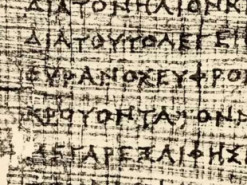 ΔΙΑΤΟΝΗΛΙΟΝΚ
ΔΙΑΤΟΥΤΟΛΕΓΕΙ
ΟΥΡΑΝΟΣΕΥΦΡΟ
ΚΡΟΥΟΝΤΑΤΟΝ
ΔΕΓΑΡΕΞΑΙΦΗΣ